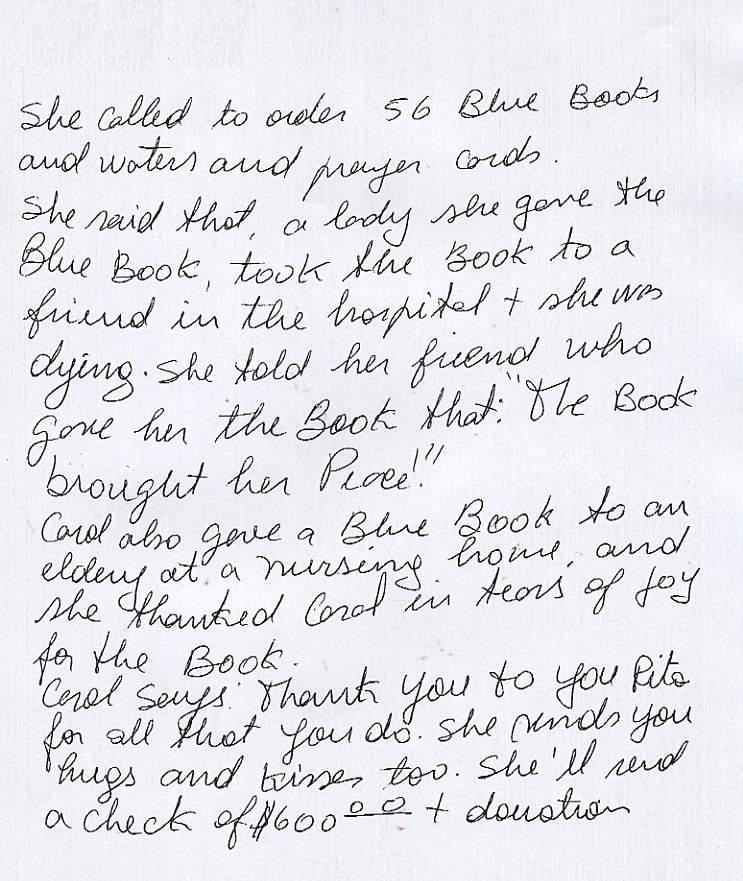 She called to order 56 Blue Books
and waters and prayer cards.
She said that, a lady she gave the
Blue Book, took the Book to a
friend in the hospital + she was
dying. She told her friend who
gave her the Book that: "The Book
brought her Peace!"
Carol also gave a Blue Book to an
eldery at a nursing home, and
she thanked Carol in tears of joy
for the Book.
Carol says: Thank you to you Rita
for all that you do. She sends you
hugs and kisses too. She'll send
a check of $600 00 + donation